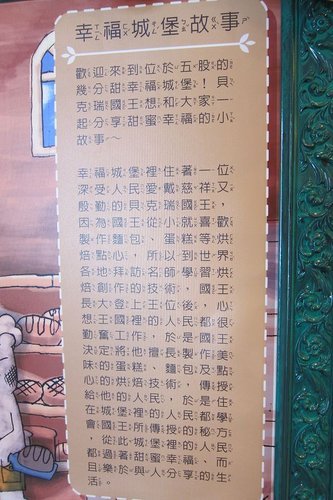 幸福城堡故事
歡迎來到位於五股的
幾分甜幸福城堡！貝
克瑞國王想和大家一
起分享甜蜜幸福的小
故事～
幸福城堡裡住著一位
深受人民愛戴慈祥又
殷勤的貝克瑞國王，
因為國王從小就喜歡
製作麵包、蛋糕等烘
焙點心，所以到世界
各地拜訪名師學習烘
焙創作的技術，國王
長大登上王位後，心
想王國裡的人民都很
勤奮工作，於是國王
決定將他擅長製作美
味的蛋糕、麵包及點
心的烘焙技術，傳授
給他的人民，於是住
在城堡裡的人民都學
會國王所傳授的秘方
，從此城堡裡的人民
都過著甜蜜幸福、而
且樂於與人分享的生
活。